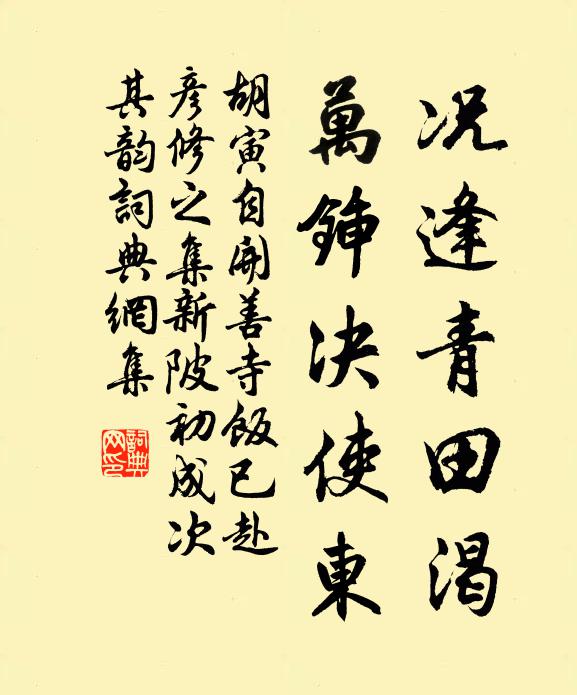 况逢青田渴
萬鍤决使東
胡寅自開善寺飯已赴
彥修之集新陂初成次
其韵詞典網集
詞典网印